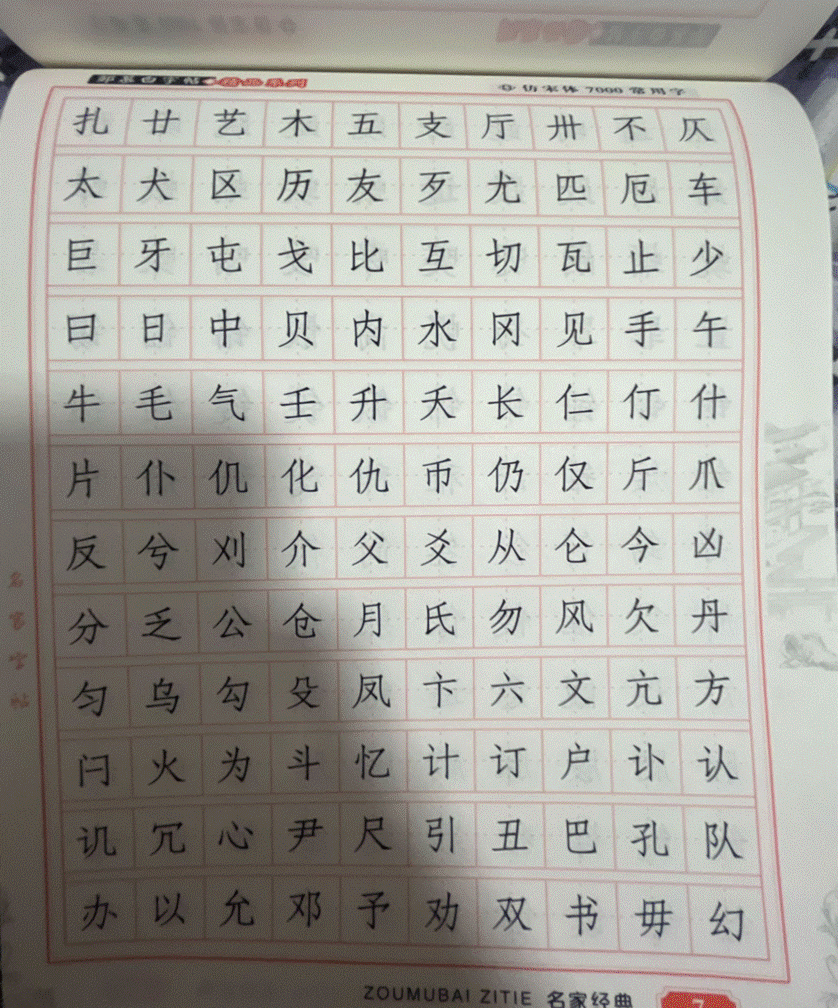 邹慕白字帖 精品系列
仿宋体 7000 常用字
扎 廿 艺 木 五 支 厅 卅 不 仄
太 犬 区 历 友 歹 尤 匹 厄 车
巨 牙 屯 戈 比 互 切 瓦 止 少
曰 日 中 贝 内 水 冈 见 手 午
牛 毛 气 壬 升 夭 长 仁 仃 什
片 仆 仉 化 仇 币 仍 仅 斤 爪
反 兮 刈 介 父 爻 从 仑 今 凶
分 乏 公 仓 月 氏 勿 风 欠 丹
匀 乌 勾 殳 凤 卞 六 文 亢 方
闩 火 为 斗 忆 计 订 户 讣 认
讥 冗 心 尹 尺 引 丑 巴 孔 队
办 以 允 邓 予 劝 双 书 毋 幻
名家字帖
ZOUMUBAI ZITIE 名家经典 7